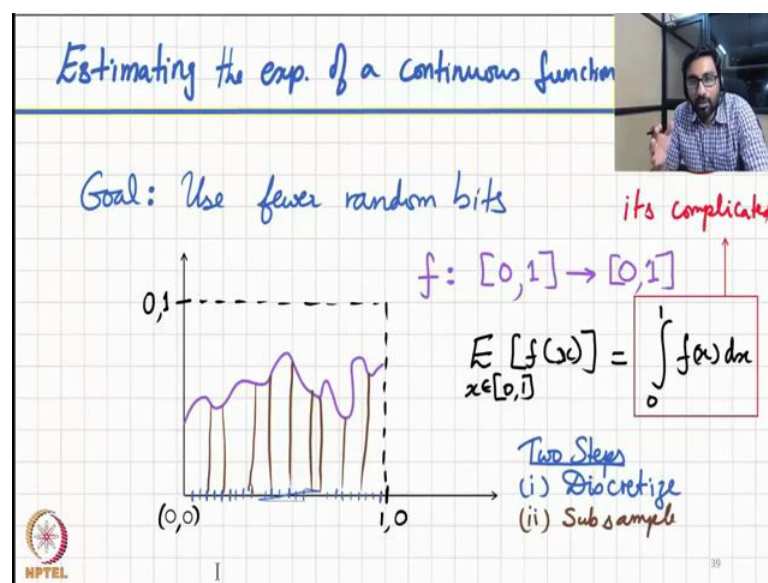 Estimating the exp. of a continuous function
Goal: Use fewer random bits
its complicated
f: [0,1] → [0,1]
0,1
E [f(x)] = ∫ f(x) dx
x∈[0,1]
1
0
Two Steps
(i) Discretize
(ii) Subsample
(0,0)
1,0
NPTEL
39